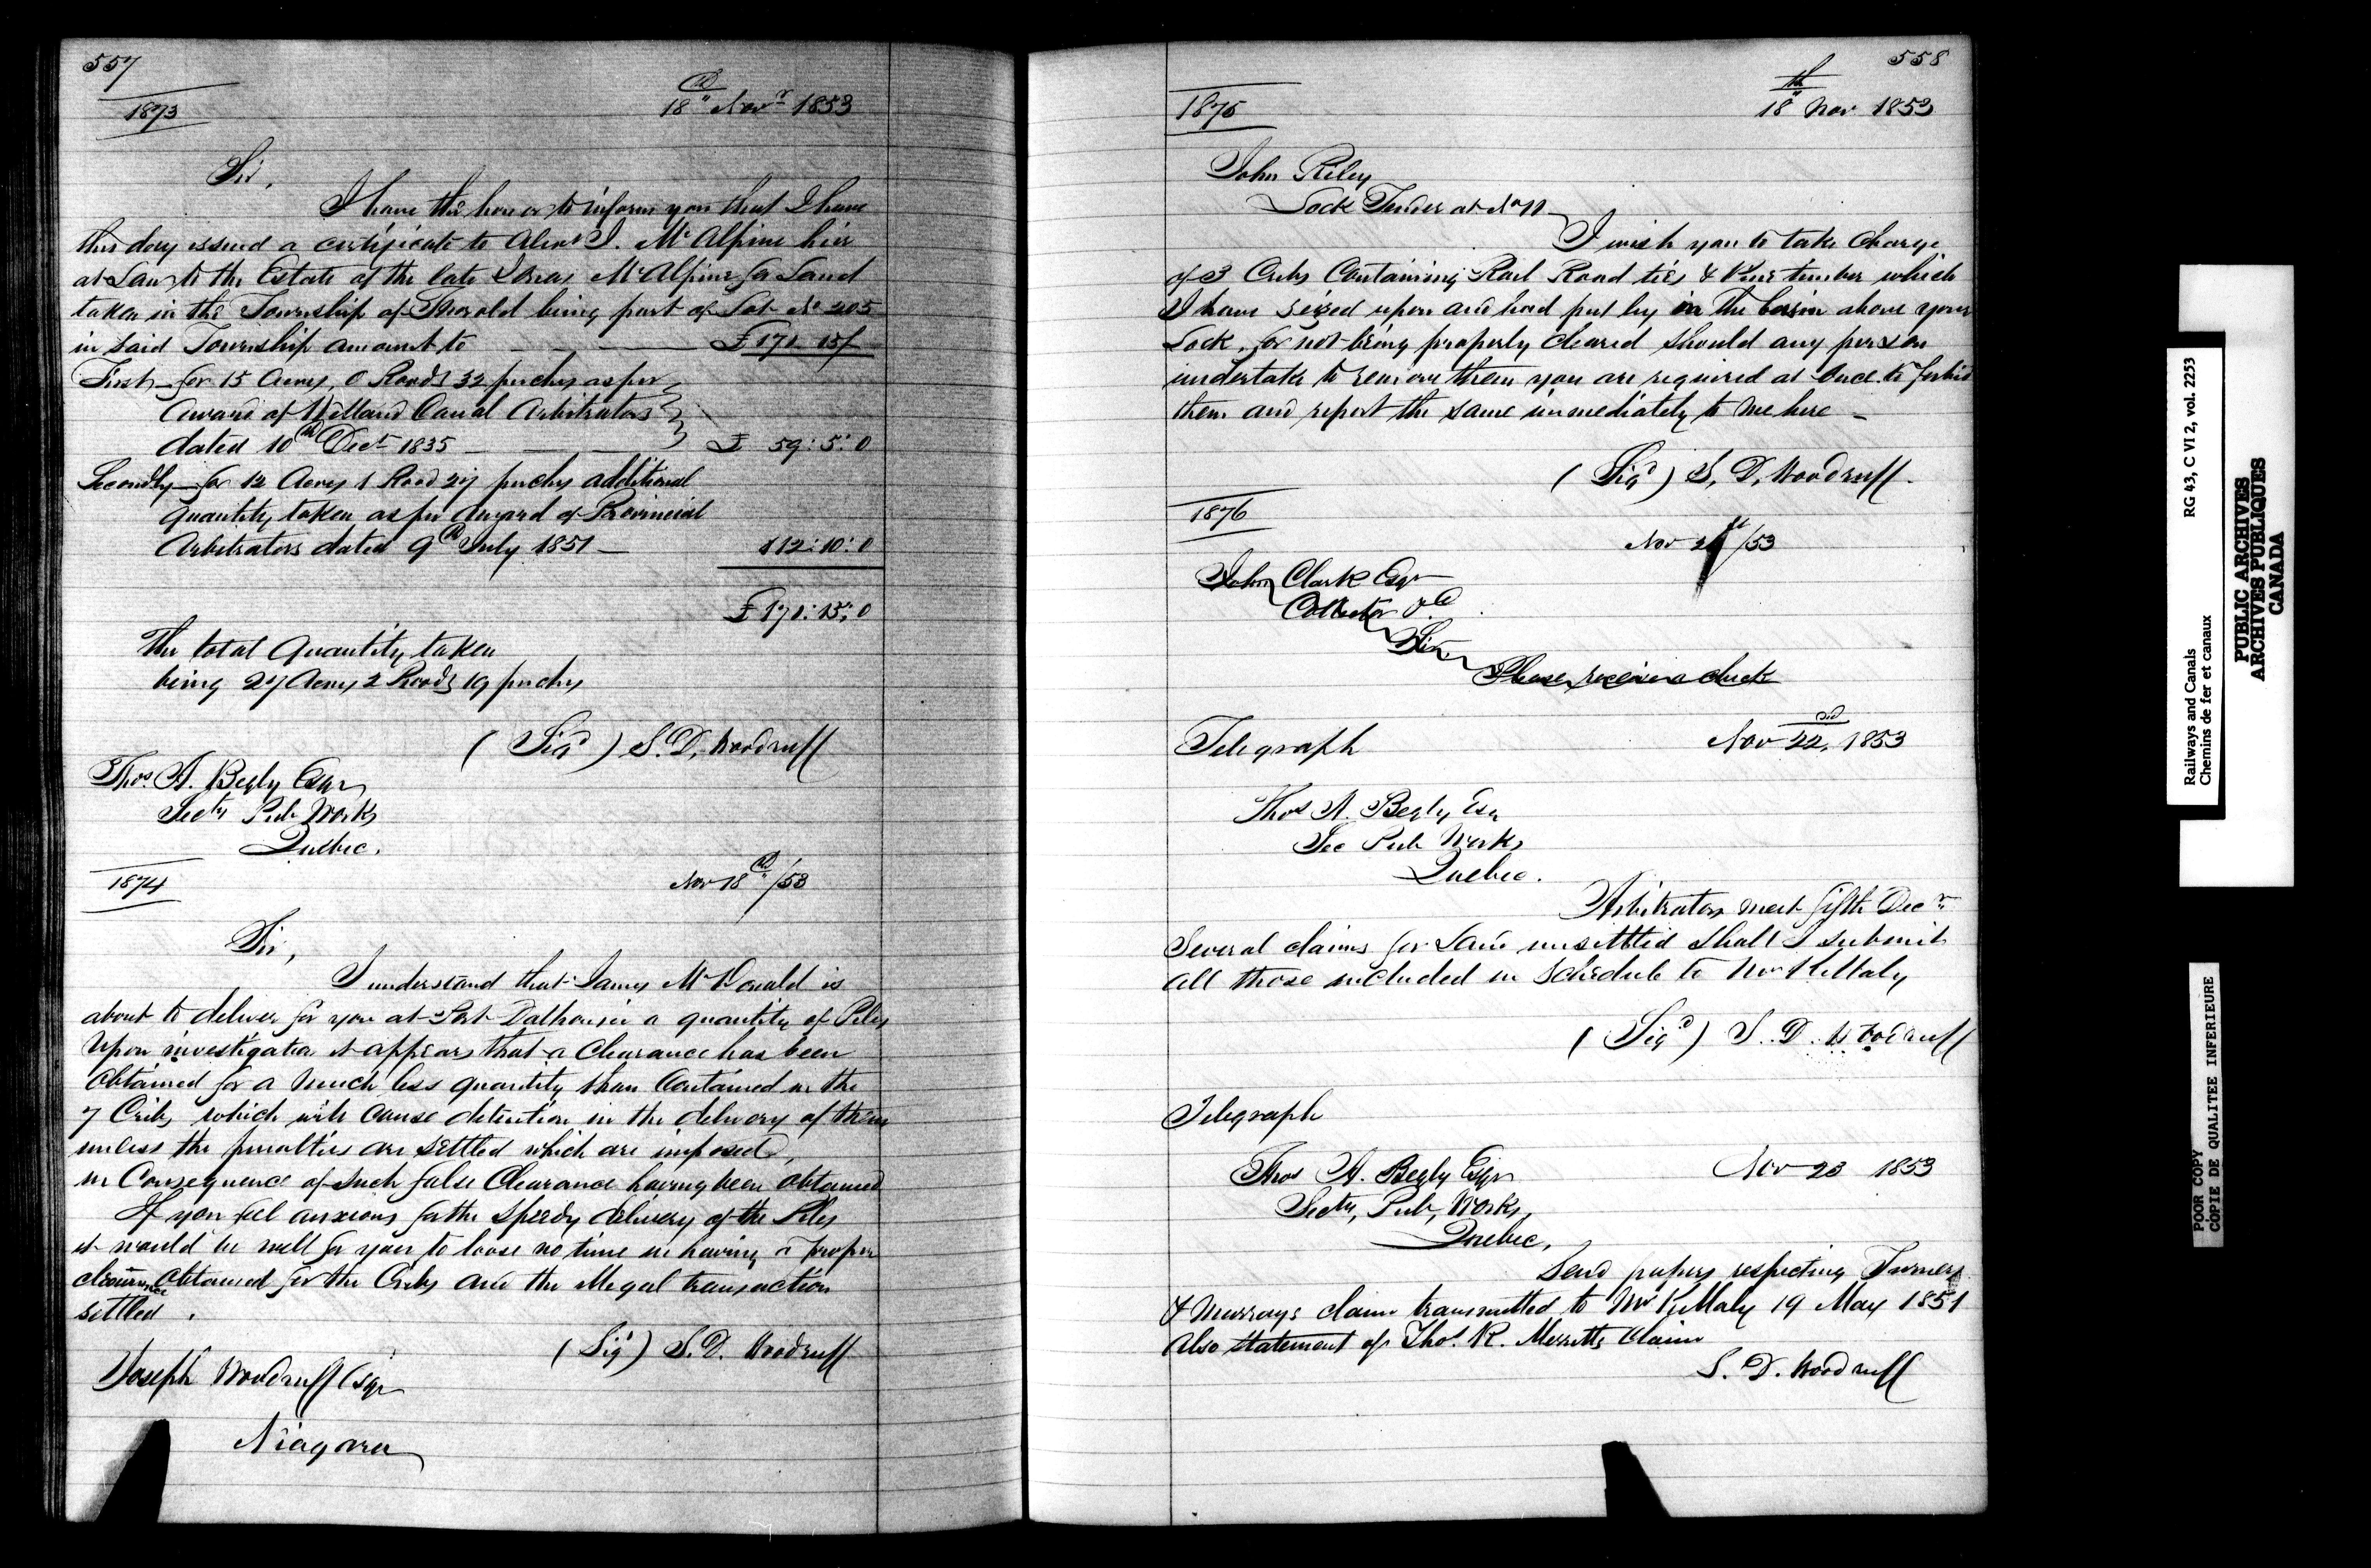 557
1873
18th Novr 1853
Sir,
I have the honor to inform you that I have
this day issued a certificate to Alexr J. McAlpine heir
at Law to the Estate of the late McAlpine for Land
taken in the Township of Thorold being part of Lot No 205
in said Township amount to £171.15/
First for 15 Acres, 0 Roods 32 perches as per
award of Welland Canal Arbitrators
dated 10th Decr 1835 £ 59:5:0
Secondly for 12 Acres 1 Rood 27 perches additional
quantity taken as per award of Provincial
Arbitrators dated 9th July 1851 112:10:0
£171:15:0
The total Quantity taken
being 27 Acres 2 Roods 19 perches
(Sigd) S. D. Woodruff
Thos. A. Begly Esqr
Secty Pub Works
Quebec.
1874
Nov 18th/53
Sir,
I understand that James McDonald is
about to deliver for you at Port Dalhousie a quantity of Piles
Upon investigation it appears that a Clearance has been
obtained for a much less quantity than Contained in the
7 Cribs which will cause detention in the delivery of them
unless the penalties are settled which are imposed,
in Consequence of such false Clearance having been obtained
If you feel anxious for the speedy delivery of the Piles
it would be well for you to loose no time in having a proper
clearance obtained for the Cribs and the illegal transaction
settled.
(Sigd) S. D. Woodruff
Joseph Woodruff Esqr
Niagara
558
1875
18th Nov 1853
John Riley
Lock Tender at No 11
I wish you to take Charge
of 3 Cribs Containing Rail Road ties & Pine timber which
I have seized upon and had put by in the basin above your
Lock, for not being properly cleared should any person
undertake to remove them you are required at Once to forbid
them and report the same immediately to me here
(Sigd) S. D. Woodruff.
1876
Nov 21st/53
John Clark Esqr
Collector &c
Sir
Please receive a check
Telegraph
Nov 22nd, 1853
Thos A. Begly Esq
Sec Pub Works
Quebec.
Arbitrators meet fifth Decr
Several claims for Land unsettled shall I submit
all those included in Schedule to Mr Killaly
(Sigd) S. D. Woodruff
Telegraph
Thos A. Begly Esqr
Nov 23 1853
Secty, Pub, Works,
Quebec,
Send papers respecting Turners
& Murrays claim transmitted to Mr Killaly 19 May 1851
Also statement of Thos. R. Merritts Claim
S. D. Woodruff
RG 43, C VI 2, vol. 2253
Railways and Canals
Chemins de fer et canaux
PUBLIC ARCHIVES
ARCHIVES PUBLIQUES
CANADA
POOR COPY
COPIE DE QUALITEE INFERIEURE